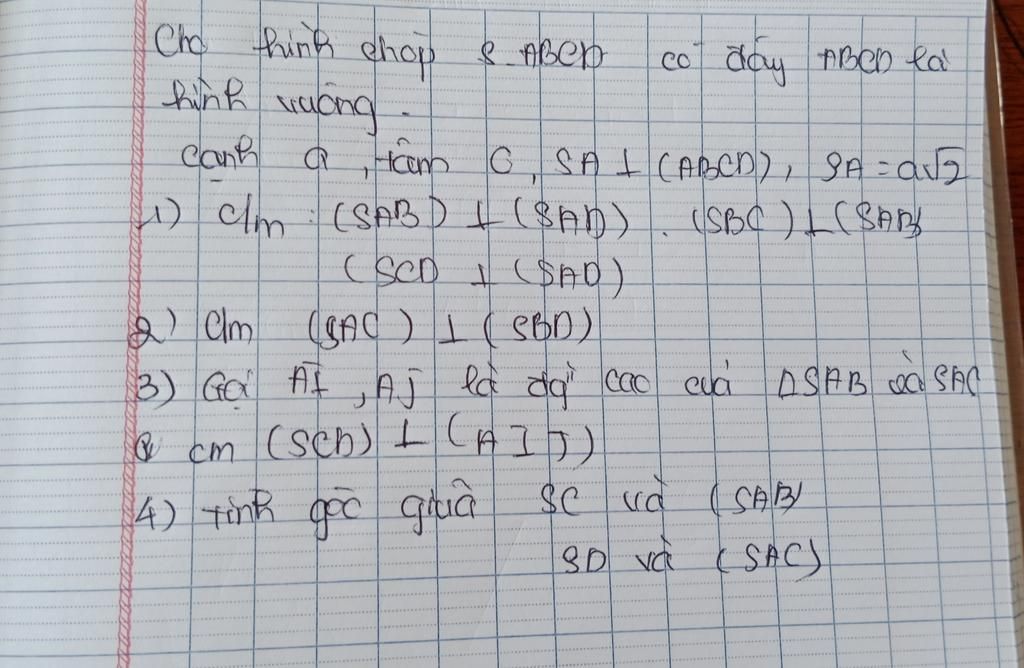 Cho hình chóp S.ABCD có đáy ABCD là
hình vuông.
cạnh a, tâm O, SA ⊥ (ABCD), SA = a√2
1) C/m: (SAB) ⊥ (SAD). (SBC) ⊥ (SAB)
(SCD ⊥ (SAD)
2) C/m (SAC) ⊥ (SBD)
3) Gọi AI, AJ là đg cao của ΔSAB và SAC
cm (SCD) ⊥ (AIJ)
4) tính góc giữa SC và (SAB)
SD và (SAC)